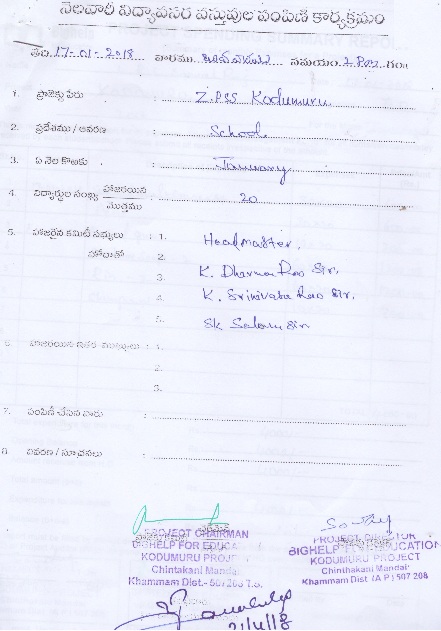 నెలవారీ విద్యావసర వస్తువుల పంపిణి కార్యక్రమం
తేది. 17-01-2018 వారము బుధవారము సమయం. 2 PM గం॥
1. ప్రాజెక్టు పేరు : Z.P.SS Kodumuru
2. ప్రదేశము / ఆవరణ : School
3. ఏ నెల కొరకు : January
4. విద్యార్థుల సంఖ్య హాజరయిన / మొత్తము : 20
5. హాజరైన కమిటీ సభ్యులు : 1. Headmaster.
హోదాతో 2.
3. K. Dharma Rao Sir.
4. K. Srinivasa Rao Sir.
5. SK Salam Sir
6. హాజరయిన ఇతర ముఖ్యులు : 1.
2.
3.
7. పంపిణీ చేసిన వారు :
8. వివరణ / సూచనలు :
PROJECT CHAIRMAN
BIGHELP FOR EDUCA
KODUMURU PROJECT
Chintakani Mandal
Khammam Dist.- 507 208 T.S.
PROJECT DIRECTOR
BIGHELP FOR EDUCATION
KODUMURU PROJECT
Chinthakani Mandal
Khammam Dist (A P) 507 208